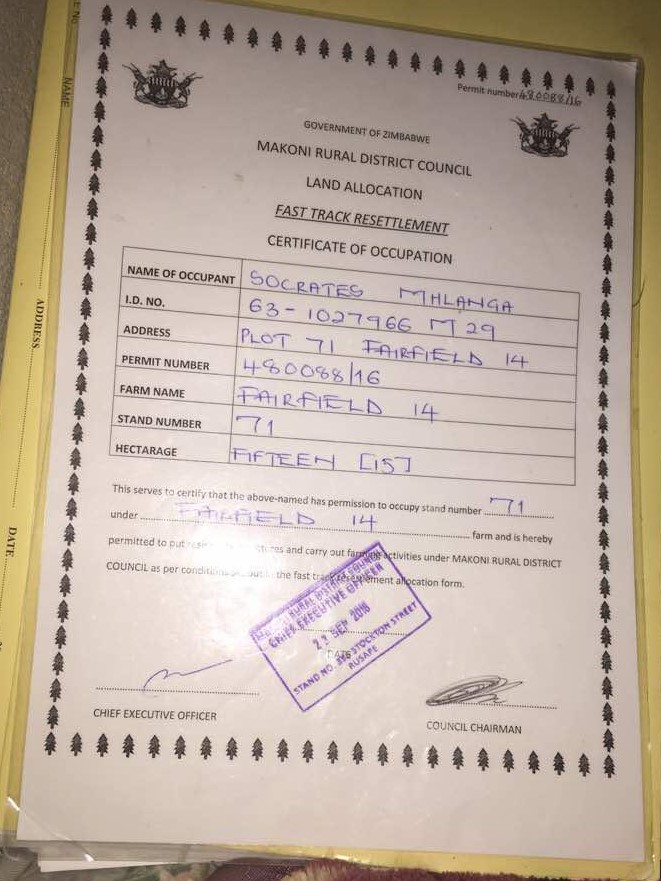 Permit number 480088/16
GOVERNMENT OF ZIMBABWE
MAKONI RURAL DISTRICT COUNCIL
LAND ALLOCATION
FAST TRACK RESETTLEMENT
CERTIFICATE OF OCCUPATION
NAME OF OCCUPANT SOCRATES MHLANGA
I.D. NO. 63-1027966 M 29
ADDRESS PLOT 71 FAIRFIELD 14
PERMIT NUMBER 480088/16
FARM NAME FAIRFIELD 14
STAND NUMBER 71
HECTARAGE FIFTEEN [15]
This serves to certify that the above-named has permission to occupy stand number 71
under FAIRFIELD 14 farm and is hereby
permitted to put and carry out farming activities under MAKONI RURAL DISTRICT
COUNCIL as per the fast track allocation form.
RURAL DISTRICT COUNCIL
CHIEF EXECUTIVE OFFICER
SEP 2016
DATE
STAND NO. STOCKTON STREET
RUSAPE
CHIEF EXECUTIVE OFFICER
COUNCIL CHAIRMAN
NAME
ADDRESS
DATE